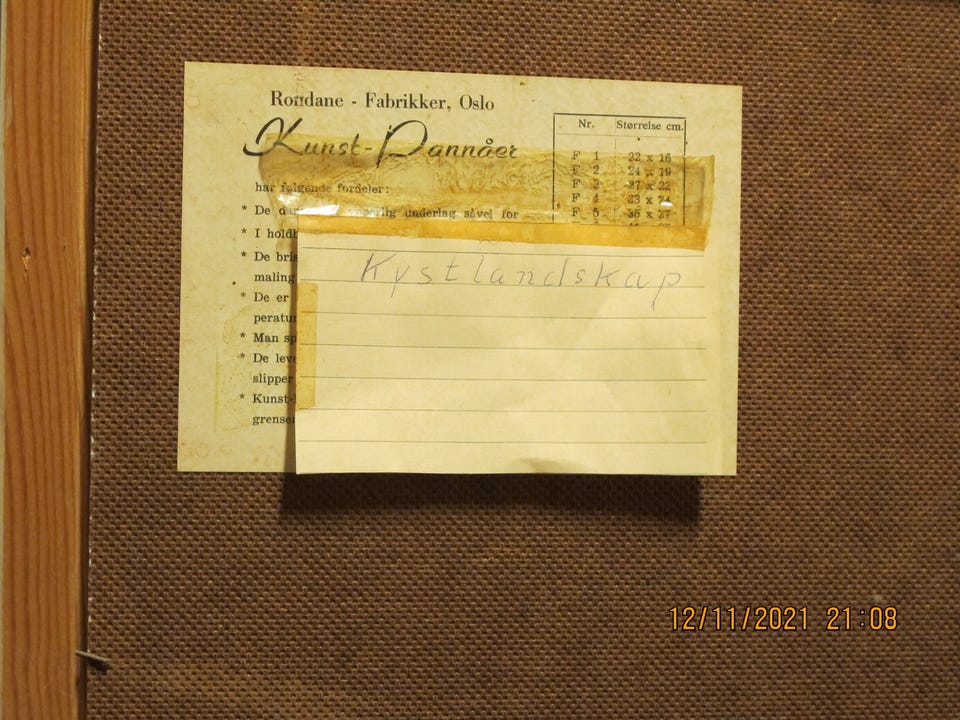 Rondane - Fabrikker, Oslo
Kunst-Pannåer
har følgende fordeler:
* De underlag såvel for
* I
* De
maling
* De er
* Man
* De
slipper
*
Nr. Størrelse cm.
F 1 22 x 16
F 2 24 x 19
F 3 27 x 22
F 4 33 x 24
F 5 35 x 27
Kystlandskap
12/11/2021 21:08